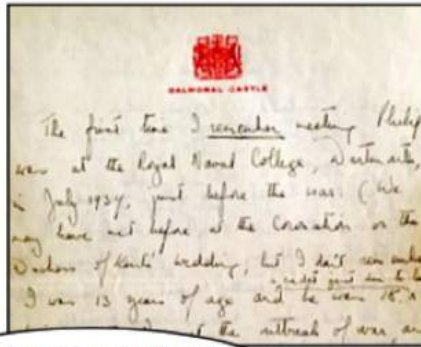 BALMORAL CASTLE
The first time I remember meeting Philip
was at the Royal Naval College, Dartmouth,
in July 1939, just before the war. (We
may have met before at the Coronation or the
Duchess of Kent's wedding, but I don't remember
I was 13 years of age and he was 18
the outbreak of war, an